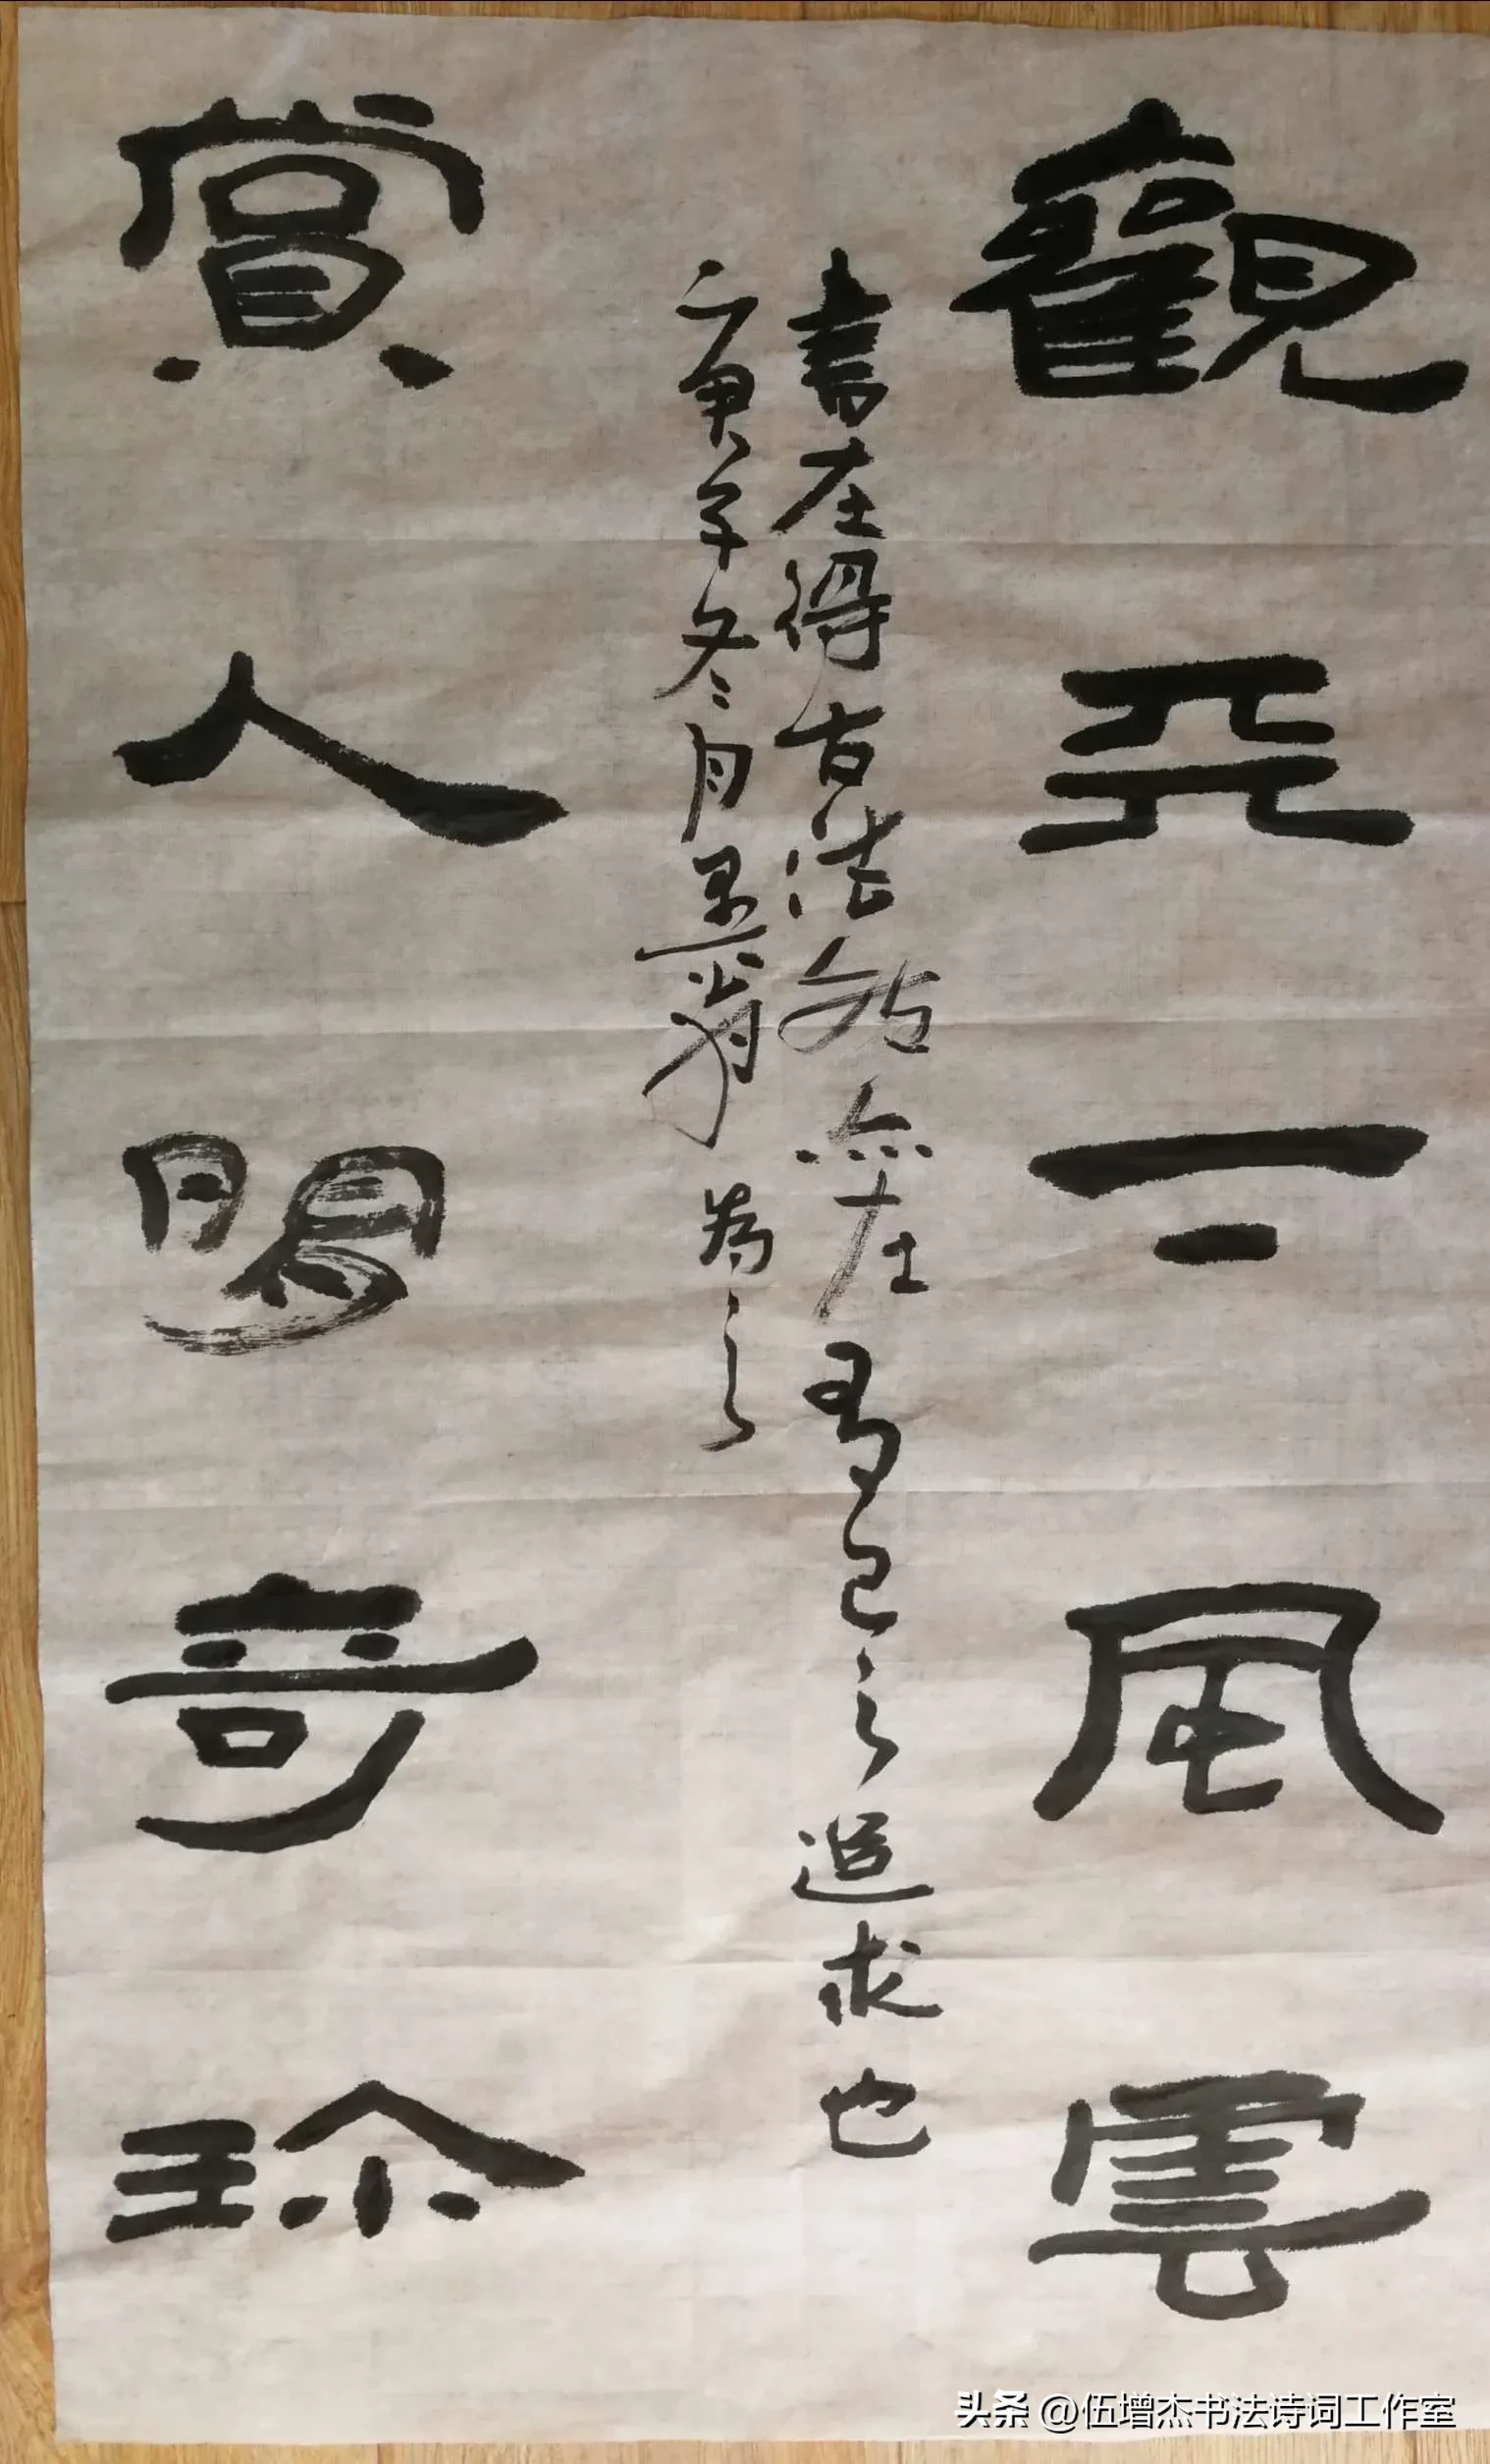 觀天下風雲
書在得古法在有己之追求也
庚子冬月為之
賞人間奇珍
头条 @伍增杰书法诗词工作室